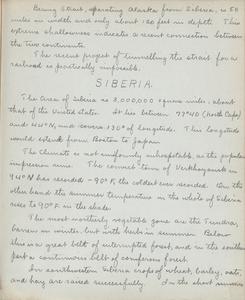 Bering Strait, separating Alaska from Siberia, is 58
miles in width and only about 180 feet in depth. This
extreme shallowness indicates a recent connection between
the two continents.
The recent project of tunnelling the strait for a
railroad is practically impossible.
SIBERIA.
The area of Siberia is 5,000,000 square miles, about
that of the United States. It lies between 77°40 (North Cape)
and 44° N, and covers 130° of longitude. This longitude
would extend from Boston to Japan.
The Climate is not uniformly inhospitable, as the popular
impression runs. The convict town of Verkhoyansk in
N has recorded -90° F, the coldest ever recorded. On the
other hand the summer temperature in the whole of Siberia
rises to 90° in the shade.
The most northerly vegetable zone are the Tundras,
barren in winter, but with herbs in summer. Below
this is a great belt of interrupted forest, and in the southern
part a continuous belt of coniferous forest.
In southwestern Siberia crops of wheat, barley, oats,
and hay are raised successfully. In the short summer